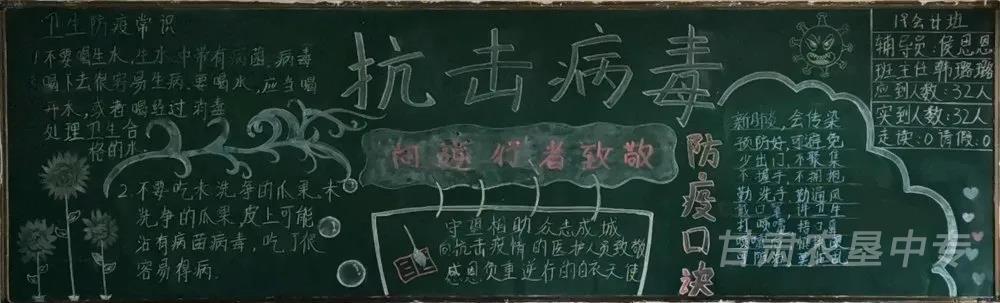 卫生防疫常识
1不要喝生水,生水中带有病菌、病毒
喝下去很容易生病.要喝水,应当喝
开水,或者喝经过消毒
处理卫生合
格的水.
2.不要吃未洗净的瓜果,未
洗净的瓜果,皮上可能
沾有病菌病毒,吃了很
容易得病.
抗击病毒
向逆行者致敬
守望相助众志成城
向抗击疫情的医护人员致敬
感恩负重逆行的白衣天使
防疫口诀
新肺炎,会传染
预防好,可避免
少出门,不聚集
不握手,不拥抱
勤洗手,勤通风
戴口罩,讲卫生
打喷嚏,捂口鼻
18会计班
辅导员:侯思恩
班主任韩璐璐
应到人数:32人
实到人数:32人
走读:0请假:0
甘肃农垦中专